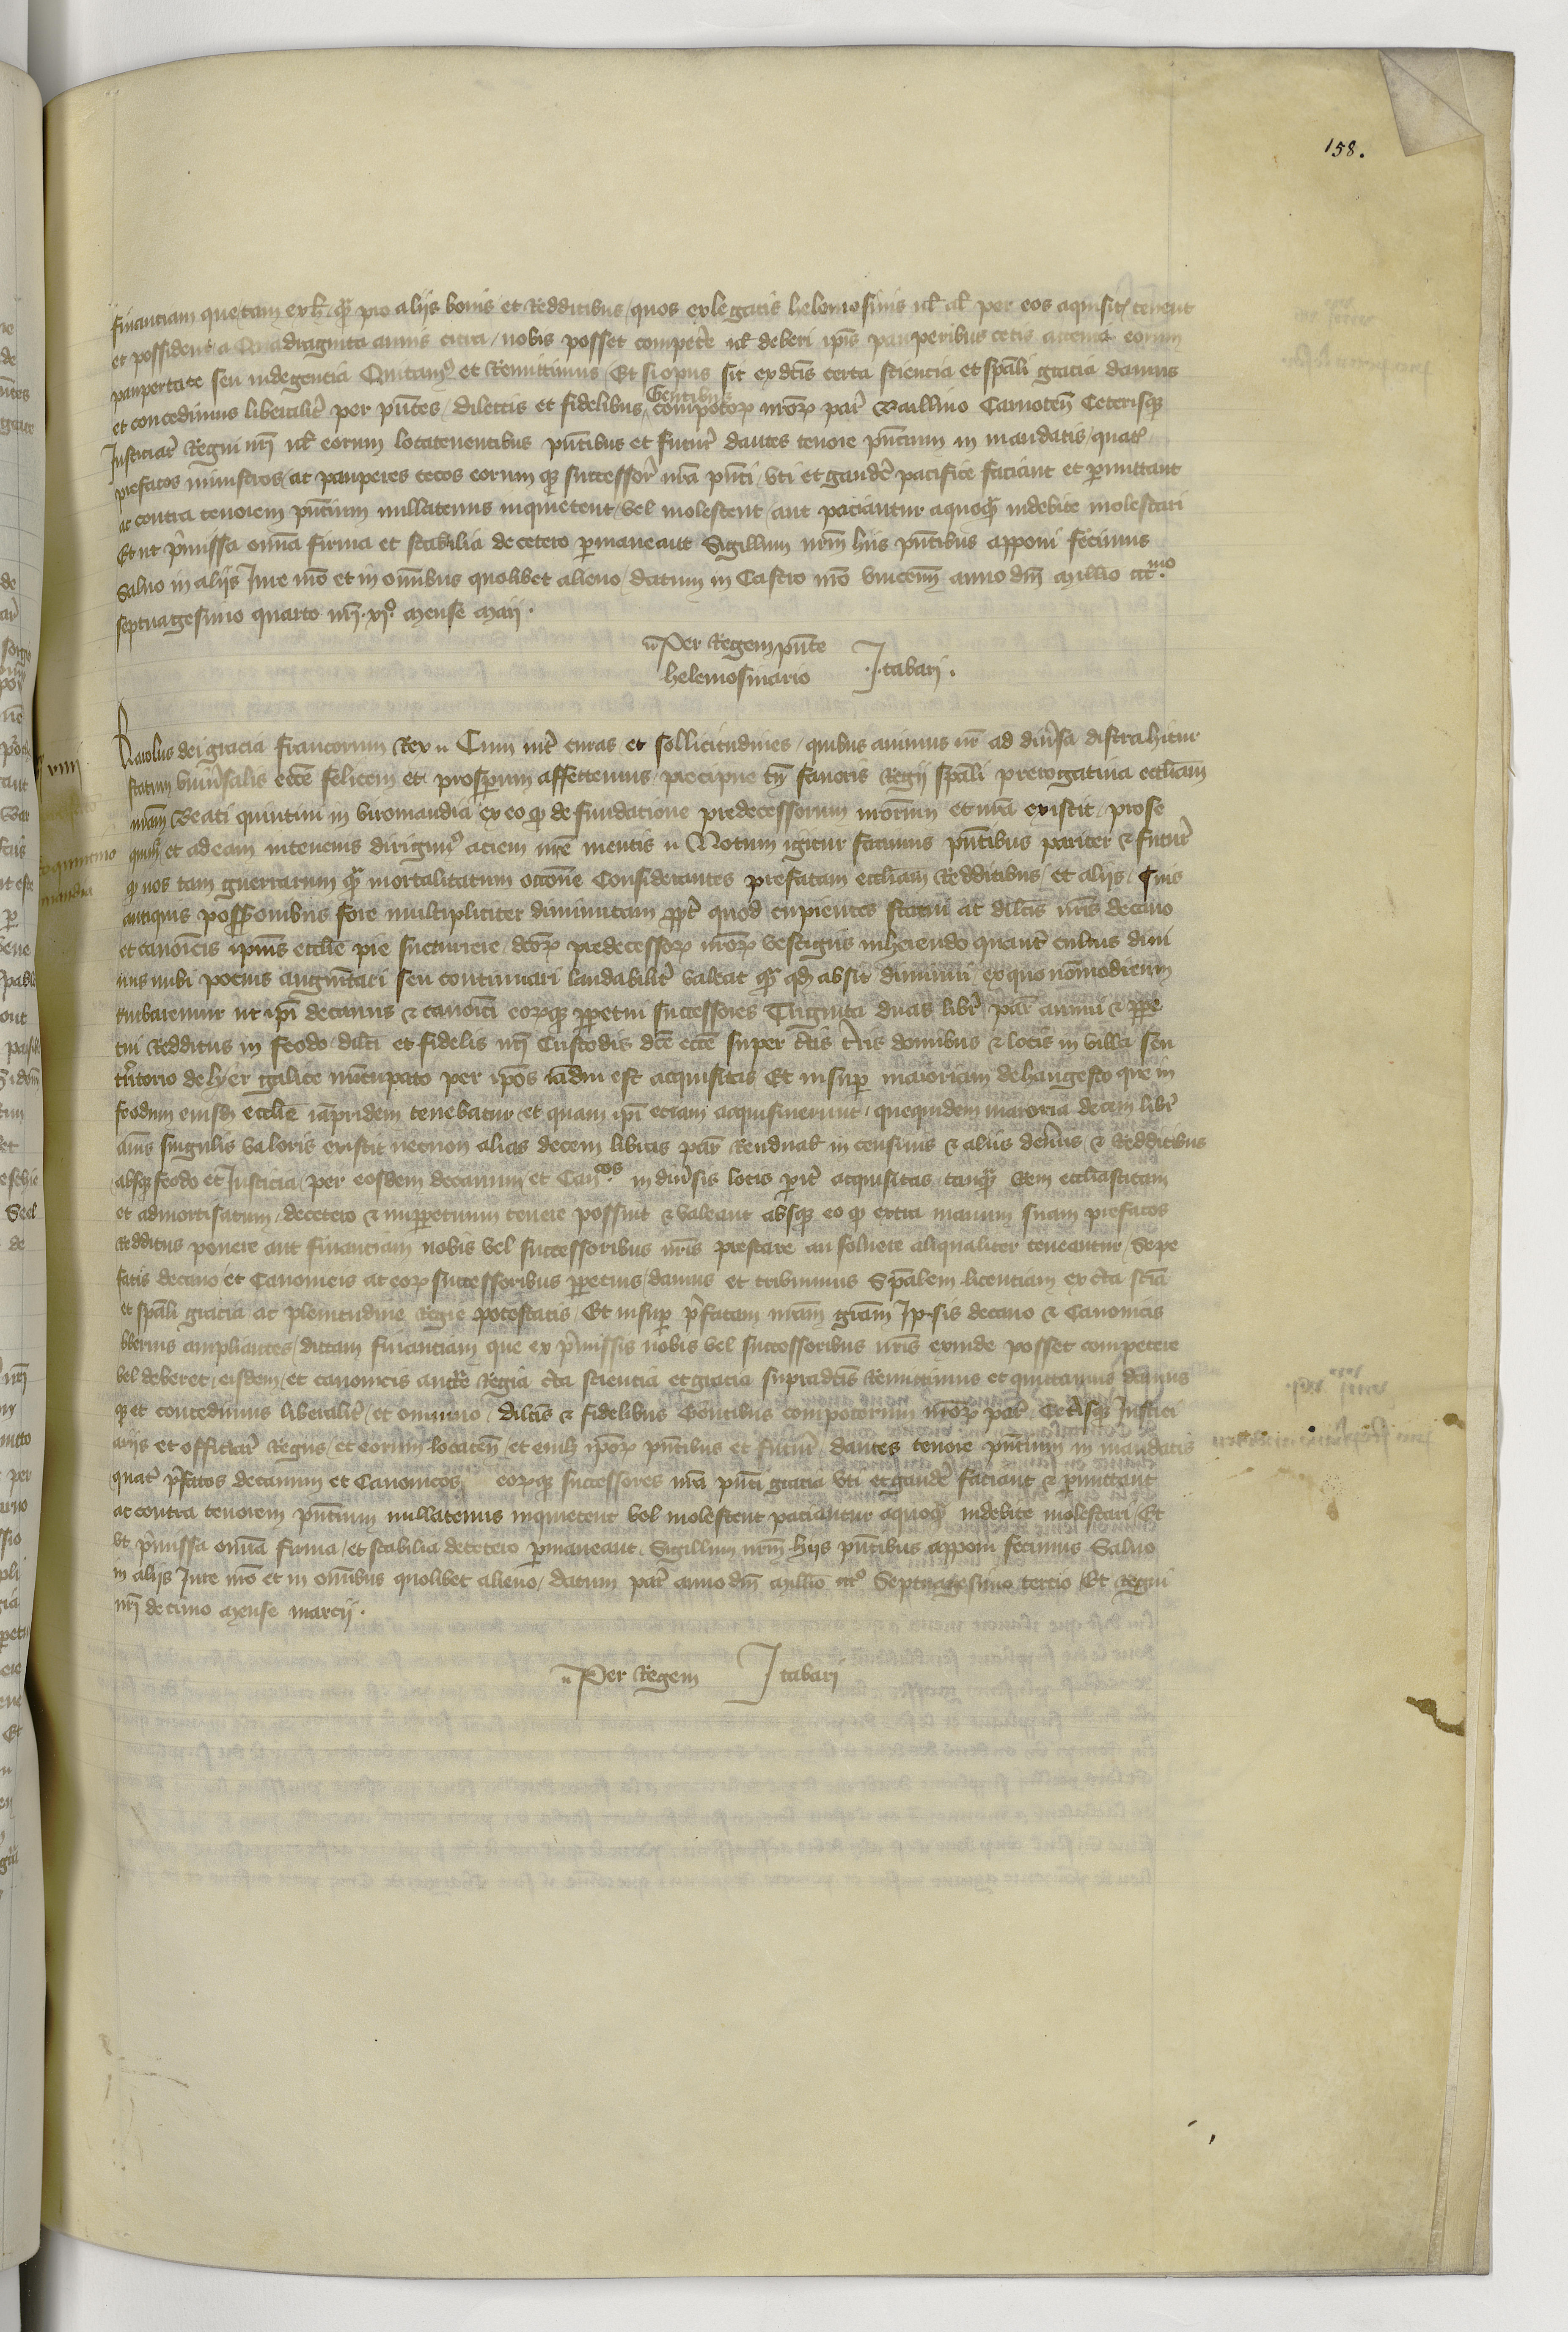 158.
financiam que tam ex h̄ q̄ pro alijs bonis et Redditibus quos ex legatis helemosinis ul̄ al̄ per eos aquisit tenent
et possident a Quadraginta annis citra nobis posset compet̄e ul̄ deberi ip̄is pauperibus cecis attenta eorum
paupertate seu indegencia Quitam⁹ et Remittimus Et si opus sit ex dc̄is certa sciencia et sp̄ali gracia damus
et concedimus liberalit̄ per pn̄tes dilectis et fidelibus Gentibus compotoꝝ nr̄oꝝ par̄ Baillivo Carnoten̄ Ceterisqꝫ
Justiciar̄ Regni nr̄i ul̄ eorum locatenentibus pn̄tibus et futur̄ dantes tenore pn̄cium in mandatis quat⁹
prefatos ministros ac pauperes cecos eorumqꝫ successor̄ nr̄a pn̄ti uti et gaudēr pacifice faciant et permittant
ac contra tenorem pn̄cium nullatenus inquietent vel molestent aut paciantur a quoqꝫ indebite molestari
Et ut p̄missa om̄ia firma et stabilia de cetero permaneant Sigillum nr̄m hiis pn̄tibus apponi fecimus
Salvo in alijs Jure nr̄o et in om̄ibus quolibet alieno datum in Castro nr̄o vincenn̄ anno dn̄i millīo ccc.mo
septuagesimo quarto nr̄i xi.º mense maij.
Per Regem pn̄te
helemosinario J. tabari.
Karolus dei gracia francorum Rex Cum int̄ curas et sollicitudines quibus animus nr̄ ad div̄sa distrahitur
statum univ̄salis ecc̄e felicem et prosperum affectemus precipue tn̄ favoris Regij sp̄ali prerogativa eccl̄iam
nr̄am Beati quintini in viromandia ex eo qꝫ de fundacione predecessorum nr̄orum et nr̄a existit prose
quim̄ et ad eam intencius dirigim⁹ aciem nr̄e mentis Notum igitur facimus pn̄tibus pariter et futur̄
qꝫ nos tam guerrarum q̄ mortalitatum occōne Considerantes prefatam eccl̄iam Redditibus et alijs suis
antiquis poss̄ionibus fore multipliciter diminutam ppt̄ quod cupientes statui ac dilc̄is nr̄is decano
et canonicis ipius eccl̄ie pie succurrere dc̄oꝝ predecessoꝝ nr̄oꝝ vestigiis inherendo quat̄ cultus divi
nus inibi pocius augm̄tari seu continuari laudabilit̄ valeat q̄ qd̄ absit diminui ex quo nō modicum
turbaremur ut ip̄i decanus et canonici eoꝝqꝫ ppetui successores Triginta duas libr̄ par̄ annui et ppe
tui Redditus in feodo dilc̄i et fidelis nr̄i Custodis dc̄e ecc̄e super c̄tis t̄ris domibus et locis in villa seu
t̄ritorio de lyer gallice nūcupato per ip̄os iādiu est acquisitas Et insup maioriam de hangesto que in
feodum eiusd̄ eccl̄ie iāpridem tenebatur et quam ip̄i eciam acquisiverunt quequidem maioria decem libr̄
ānis singulis valoris existit necnon alias decem libras par̄ Rendual̄ in censivis et aliis dev̄iis et Redditibus
absqꝫ feodo et Justicia per eosdem decanum et Can.cos in div̄sis locis pit̄ acquisitas tanq̄ Rem eccl̄iasticam
et admortisatam decetero et inppetuum tenere possint et valeant absqꝫ eo qꝫ extra manum suam prefatos
Redditus ponere aut financiam nobis vel successoribus nr̄is prestare au solvere aliqualiter teneantur Sepe
fatis decano et Canonicis ac eoꝝ successoribus ppetuis damus et tribuimus Sp̄alem licentiam ex c̄ta sc̄ia
et sp̄ali gracia ac plenitudine Regie potestatis Et insup p̄fatam nr̄am gr̄am Ipsis decano et Canonicis
uberius ampliantes dictam financiam que ex p̄missis nobis vel successoribus nr̄is exinde posset competere
vel deberet eisdem et canonicis auct̄te Regia c̄ta sciencia et gracia supradc̄is Remittimus et quittamus damus
qꝫ et concedimus liberalit̄ et omnino dilc̄is et fidelibus Gentibus compotorum nr̄oꝝ par̄ Cet̄isqꝫ Justici
ariis et officiar̄ Regiis et eorum locaten̄ et cuil̄ ip̄oꝝ pn̄tibus et futur̄ dantes tenore pn̄cium in mandatis
quat̄ p̄fatos decanum et Canonicos eoꝝqꝫ successores nr̄a pn̄ti gracia uti et gaudēr faciant et pmittant
ac contra tenorem pn̄cium nullatenus inquietent vel molestent paciantur a quoqꝫ indebite molestari Et
ut p̄missa om̄ia firma et stabilia decetero pmaneant Sigillum nr̄m hijs pn̄tibus apponi fecimus Salvo
in alijs Jure nr̄o et in om̄ibus quolibet alieno datum par̄ anno dn̄i millīo ccc.º Septuagesimo tercio Et Regni
nr̄i decimo mense marcij.
Per Regem J tabari